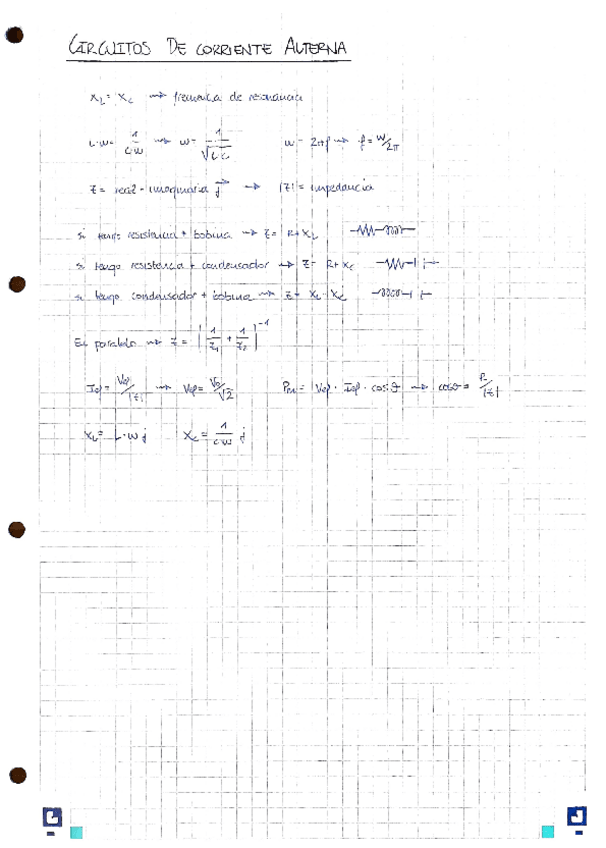 CIRCUITOS DE CORRIENTE ALTERNA
X_L = X_C → frecuencia de resonancia
L·w = 1/(C·w) → w = 1/√(L·C)    w = 2πf → f = w/2π
Z = real + imaginaria j → |Z| = impedancia
Si tengo resistencia + bobina → Z = R + X_L
Si tengo resistencia + condensador → Z = R + X_C
Si tengo condensador + bobina → Z = X_L · X_C
En paralelo → Z = | 1/Z₁ + 1/Z₂ |⁻¹
Ief = Vef/|Z| → Vef = V₀/√2    Pm = Vef · Ief · cos θ → cos θ = R/|Z|
X_L = L·w j    X_C = 1/(C·w) j